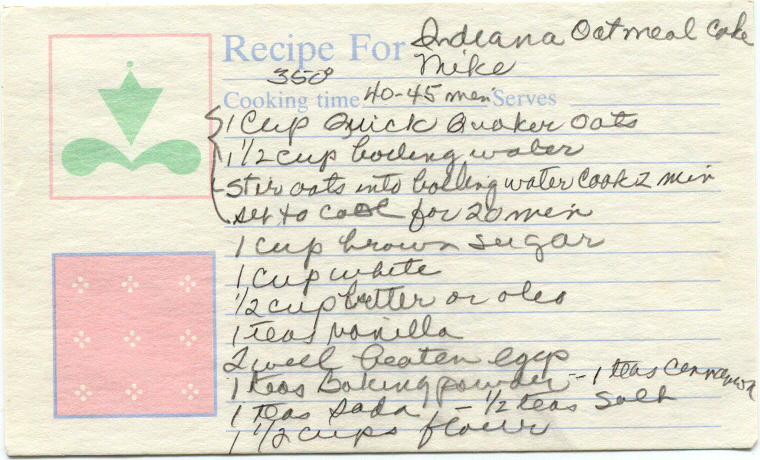 Recipe For Indiana Oatmeal Cake
Mike
350°
Cooking time 40-45 min Serves
1 Cup Quick Quaker Oats
1 1/2 cup boiling water
Stir oats into boiling water cook 2 min
set to cool for 20 min
1 cup brown sugar
1 cup white
1/2 cup butter or oleo
1 teas vanilla
2 well beaten eggs
1 teas Baking powder -- 1 teas Cinnamon
1 teas Soda - 1/2 teas Salt
1 1/2 cups flour